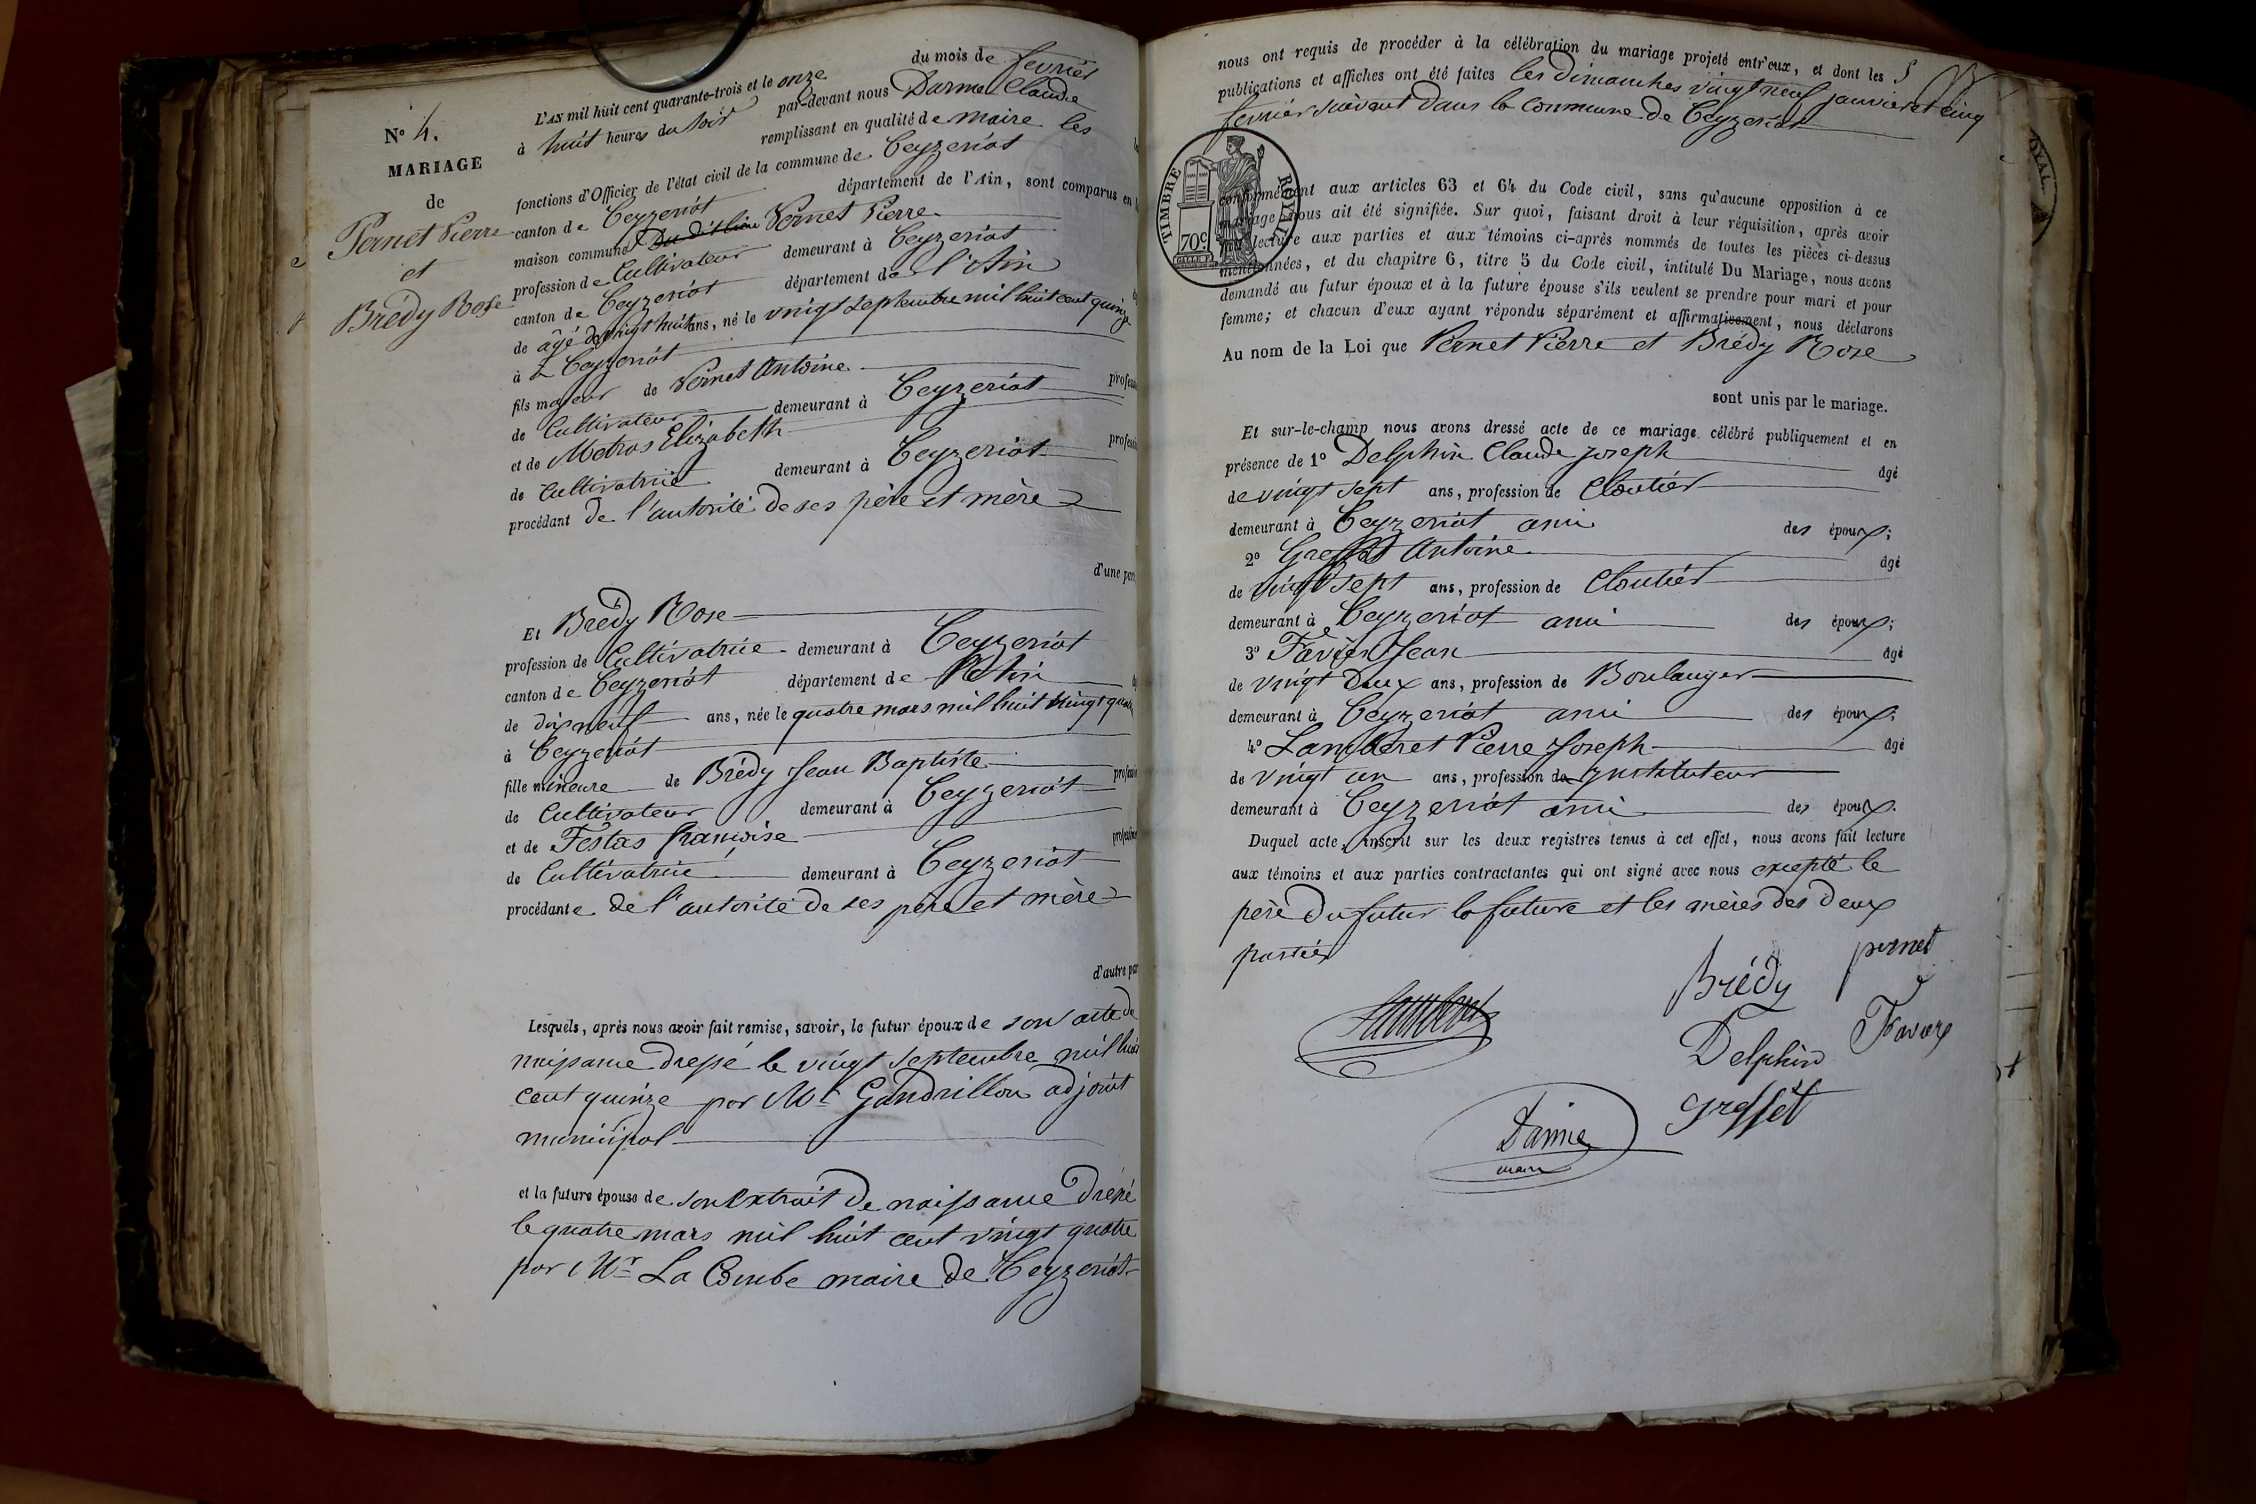 N° 4.
MARIAGE
de
Pernet Pierre
et
Brédy Rose
L'AN mil huit cent quarante-trois et le onze du mois de fevrier
à huit heures du soir par-devant nous Darme Claude
remplissant en qualité de maire les
fonctions d'Officier de l'état civil de la commune de Ceyzeriat
canton de Ceyzeriat département de l'Ain, sont comparus en
maison commune Pernet Pierre
profession de Cultivateur demeurant à Ceyzeriat
canton de Ceyzeriat département de l'Ain
de âgé de vingt huit ans, né le vingt septembre mil huit cent quinze
à Ceyzeriat
fils majeur de Pernet Antoine profess
de Cultivateur demeurant à Ceyzeriat
et de Metras Elizabeth professi
de Cultivatrice demeurant à Ceyzeriat
procédant de l'autorité de ses père et mère
d'une par
Et Brédy Rose
profession de Cultivatrice demeurant à Ceyzeriat
canton de Ceyzeriat département de l'Ain
de dix neuf ans, née le quatre mars mil huit vingt quatre
à Ceyzeriat
fille mineure de Brédy Jean Baptiste professi
de Cultivateur demeurant à Ceyzeriat
et de Festas françoise profession
de Cultivatrice demeurant à Ceyzeriat
procédante de l'autorité de ses père et mère
d'autre par
Lesquels, après nous avoir fait remise, savoir, le futur époux de son acte de
naissance dressé le vingt septembre mil huit
cent quinze par Mr Gandrillon adjoint
municipal
et la future épouse de son extrait de naissance dressé
le quatre mars mil huit cent vingt quatre
par Mr La Combe maire de Ceyzeriat
nous ont requis de procéder à la célébration du mariage projeté entr'eux, et dont les
publications et affiches ont été faites les dimanches vingt neuf janvier et cinq
fevrier suivant dans la commune de Ceyzeriat
TIMBRE ROYAL
70c.
conformément aux articles 63 et 64 du Code civil, sans qu'aucune opposition à ce
mariage nous ait été signifiée. Sur quoi, faisant droit à leur réquisition, après avoir
fait lecture aux parties et aux témoins ci-après nommés de toutes les pièces ci-dessus
mentionnées, et du chapitre 6, titre 5 du Code civil, intitulé Du Mariage, nous avons
demandé au futur époux et à la future épouse s'ils veulent se prendre pour mari et pour
femme; et chacun d'eux ayant répondu séparément et affirmativement, nous déclarons
Au nom de la Loi que Pernet Pierre et Brédy Rose
sont unis par le mariage.
Et sur-le-champ nous avons dressé acte de ce mariage célébré publiquement et en
présence de 1° Delphin Claude Joseph âgé
de vingt sept ans, profession de Cloutier
demeurant à Ceyzeriat ami des époux;
2° Greffet Antoine âgé
de vingt sept ans, profession de Cloutier
demeurant à Ceyzeriat ami des époux;
3° Favier Jean âgé
de vingt deux ans, profession de Boulanger
demeurant à Ceyzeriat ami des époux;
4° Lamberet Pierre Joseph âgé
de vingt un ans, profession de instituteur
demeurant à Ceyzeriat ami des époux.
Duquel acte, inscrit sur les deux registres tenus à cet effet, nous avons fait lecture
aux témoins et aux parties contractantes qui ont signé avec nous excepté le
père du futur la future et les mères des deux
parties
pernet
Brédy
Favier
Delphin
Greffet
Darme
maire